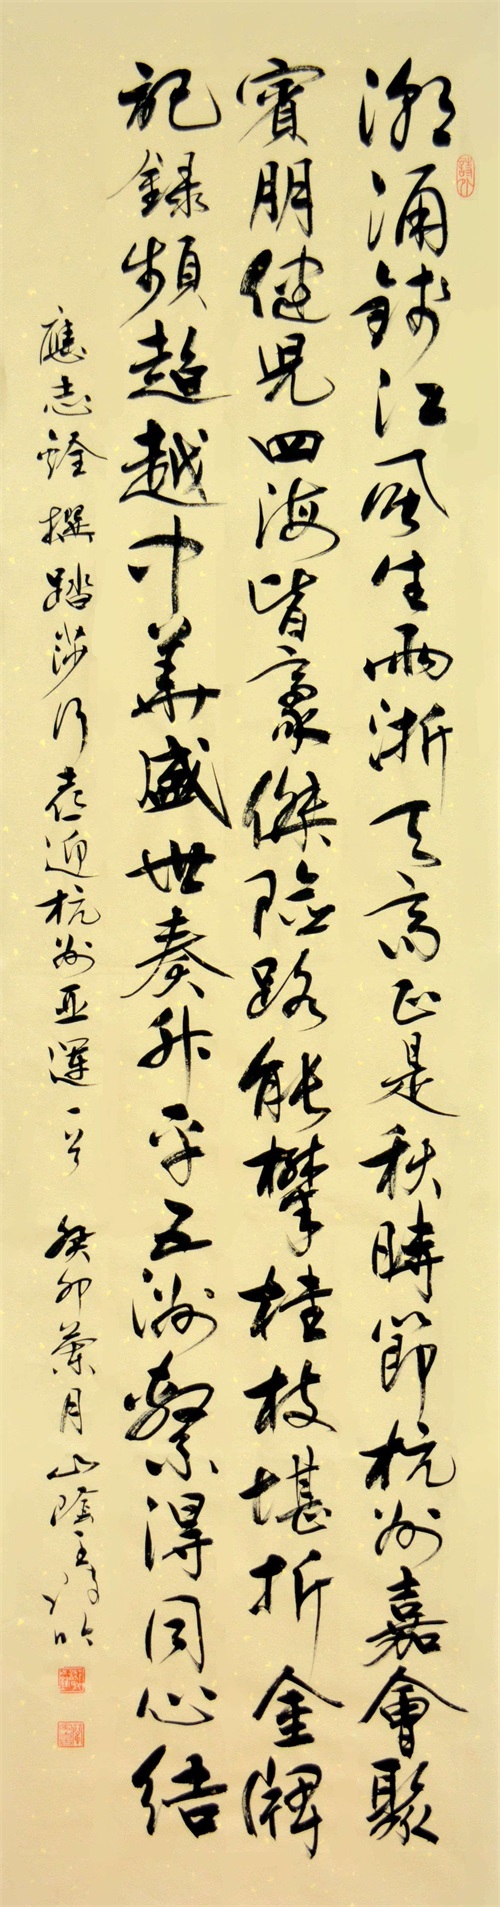 潮涌錢江風生兩浙天高正是秋時節杭州嘉會聚
賓朋健兒四海皆豪傑險路能攀桂枝堪折金牌
記錄頻超越中華盛世奏升平五洲繫得同心結
應志銓撰踏莎行喜迎杭州亞運一首 癸卯蘭月山陰